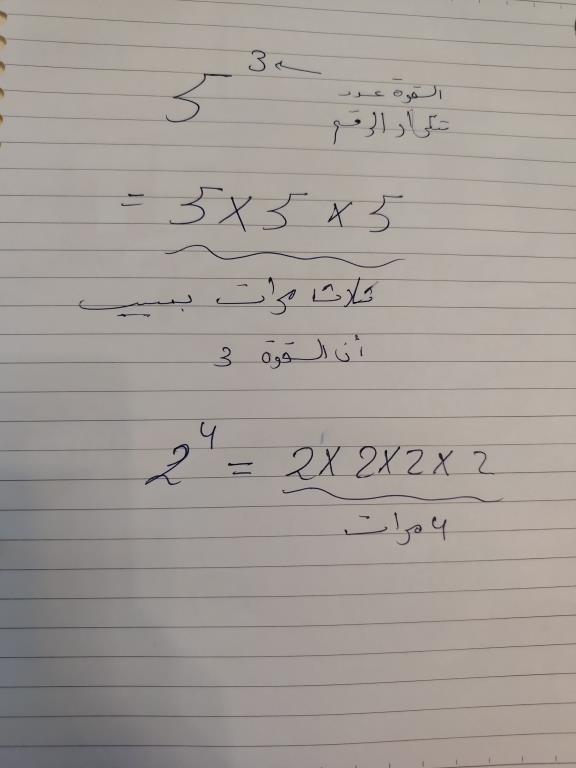 5³ ← القوة عدد
تكرار الرقم
= 5 × 5 × 5
ثلاث مرات بسبب
أن القوة 3
2⁴ = 2 × 2 × 2 × 2
4 مرات